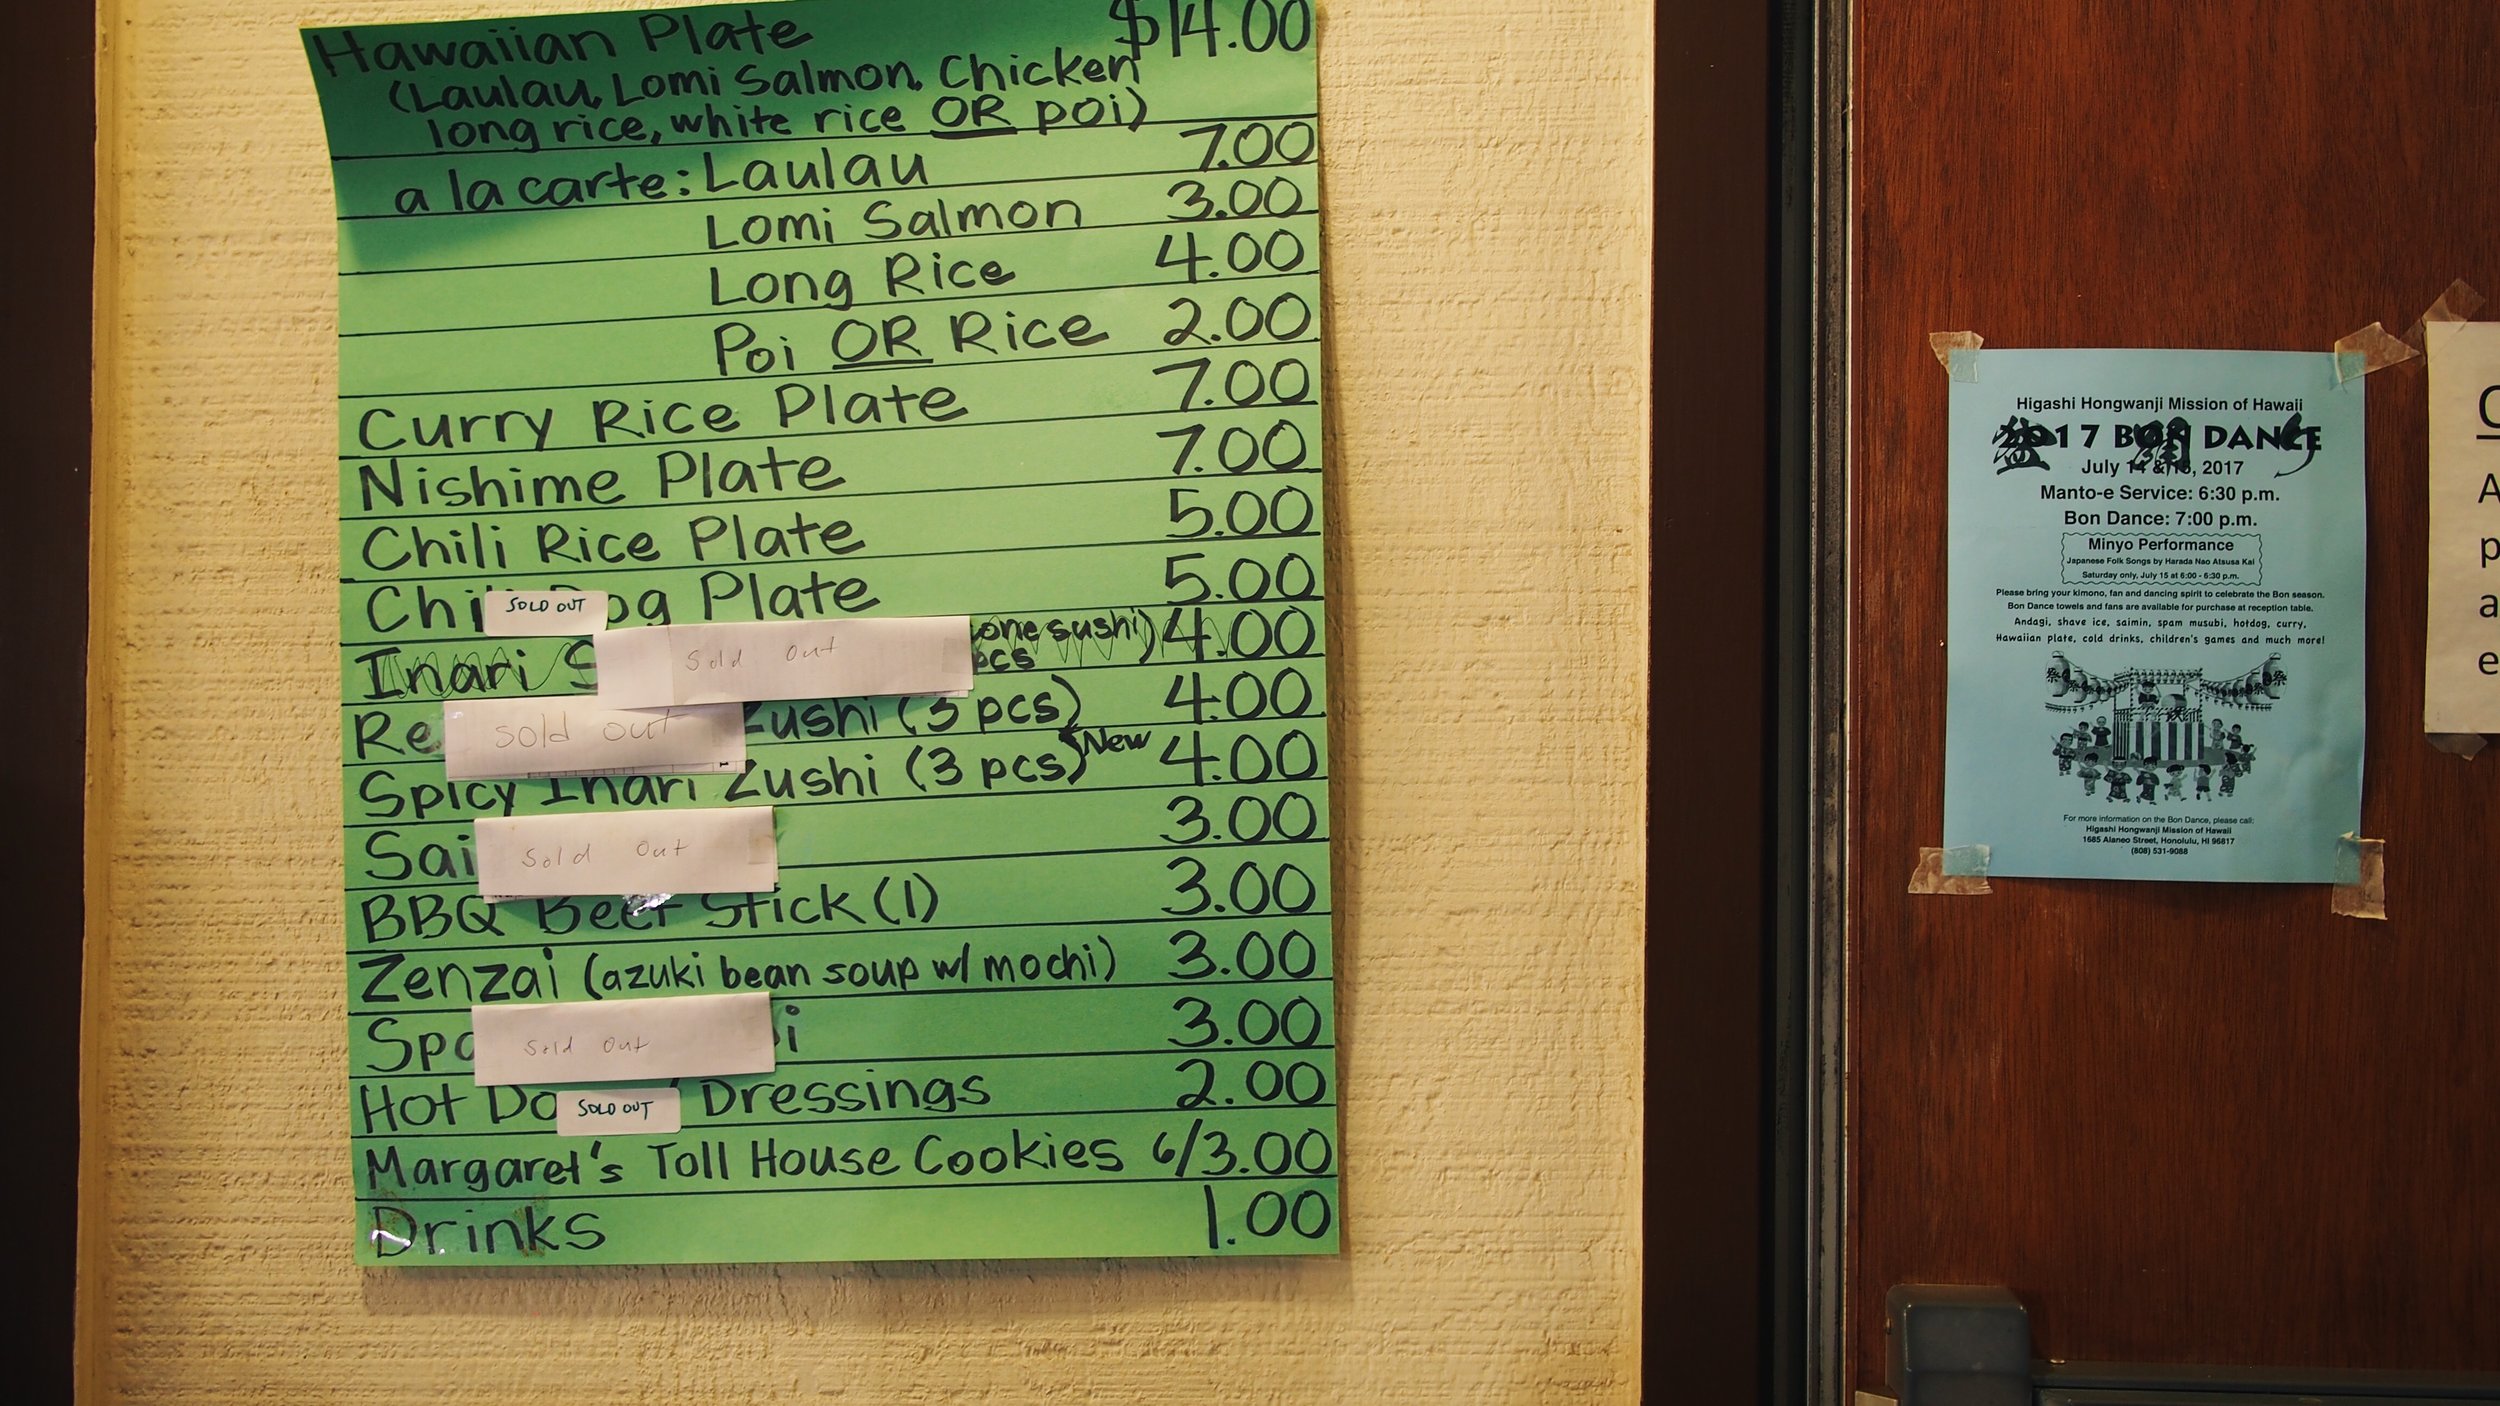 Hawaiian Plate $14.00
(Laulau, Lomi Salmon, Chicken
long rice, white rice OR poi)
a la carte: Laulau 7.00
Lomi Salmon 3.00
Long Rice 4.00
Poi OR Rice 2.00
Curry Rice Plate 7.00
Nishime Plate 7.00
Chili Rice Plate 5.00
Chil Dog Plate 5.00
SOLD OUT
Inari S cone sushi) 4.00
pcs
Sold Out
Re Zushi (3 pcs) 4.00
Sold out
Spicy Inari Zushi (3 pcs) New 4.00
Sai 3.00
Sold Out
BBQ Beef Stick (1) 3.00
Zenzai (azuki bean soup w/ mochi) 3.00
Spa i 3.00
Sold Out
Hot Do Dressings 2.00
SOLD OUT
Margaret's Toll House Cookies 6/3.00
Drinks 1.00
Higashi Hongwanji Mission of Hawaii
2017 BON DANCE
July 14 & 15, 2017
Manto-e Service: 6:30 p.m.
Bon Dance: 7:00 p.m.
Minyo Performance
Japanese Folk Songs by Harada Nao Atsusa Kai
Saturday only, July 15 at 6:00 - 6:30 p.m.
Please bring your kimono, fan and dancing spirit to celebrate the Bon season.
Bon Dance towels and fans are available for purchase at reception table.
Andagi, shave ice, saimin, spam musubi, hotdog, curry,
Hawaiian plate, cold drinks, children's games and much more!
For more information on the Bon Dance, please call:
Higashi Hongwanji Mission of Hawaii
1685 Alaneo Street, Honolulu, HI 96817
(808) 531-9088
A
p
a
e